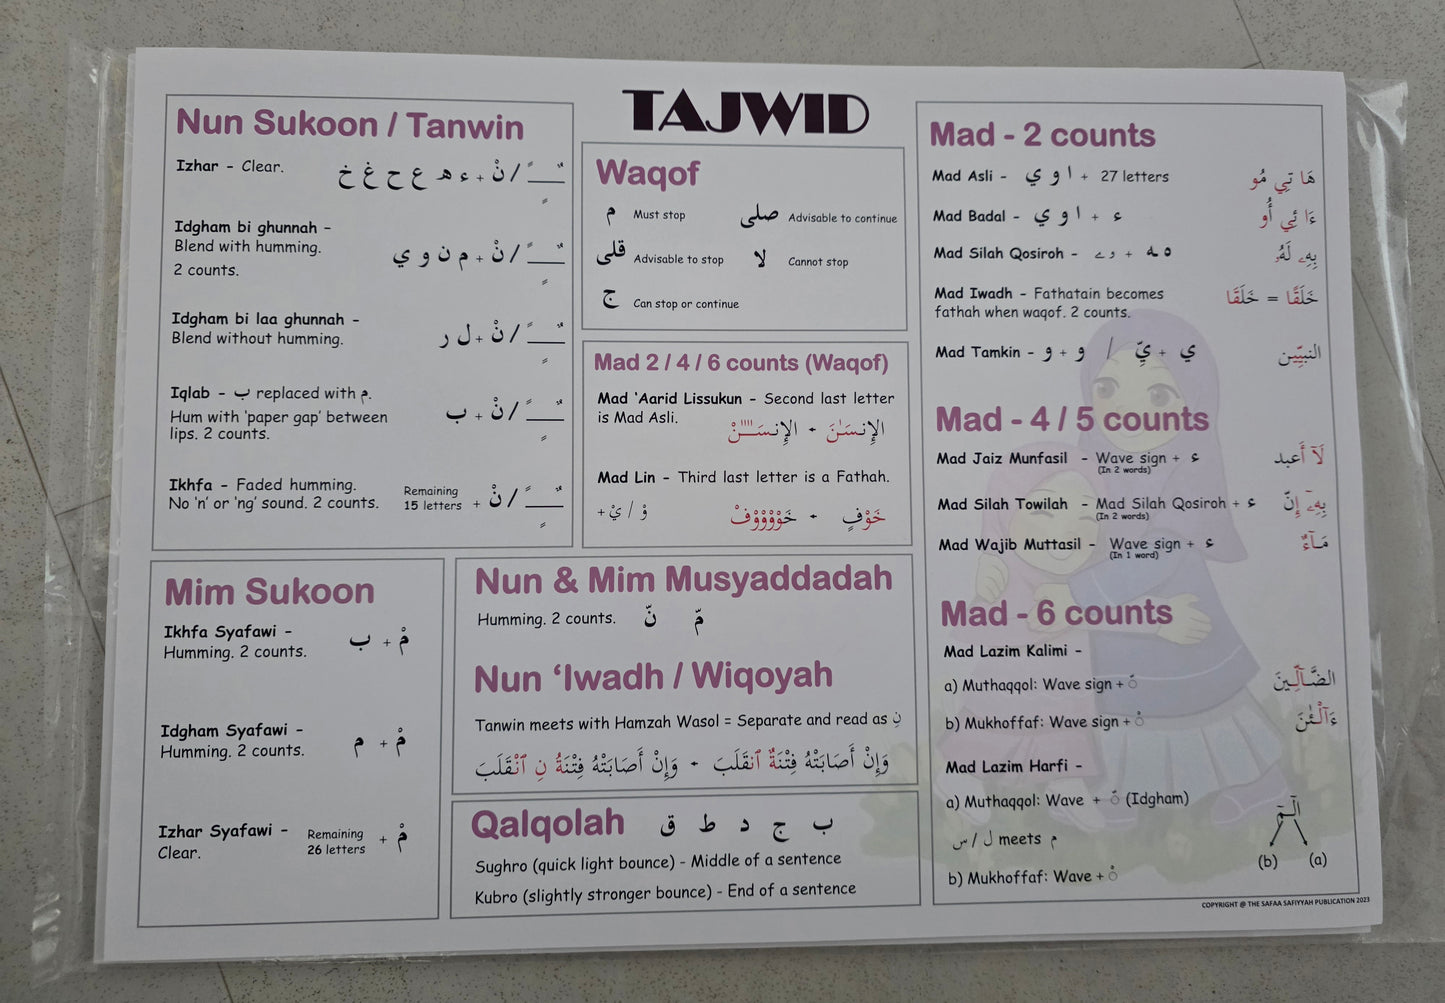 TAJWID
Nun Sukoon / Tanwin
Izhar - Clear.
نْ / ـًـ ـٌـ ـٍـ + ء ه ع ح غ خ
Idgham bi ghunnah -
Blend with humming.
2 counts.
نْ / ـًـ ـٌـ ـٍـ + م ن و ي
Idgham bi laa ghunnah -
Blend without humming.
نْ / ـًـ ـٌـ ـٍـ + ل ر
Iqlab - ب replaced with م.
Hum with 'paper gap' between
lips. 2 counts.
نْ / ـًـ ـٌـ ـٍـ + ب
Ikhfa - Faded humming.
No 'n' or 'ng' sound. 2 counts.
Remaining
15 letters + نْ / ـًـ ـٌـ ـٍـ
Waqof
م Must stop
صلى Advisable to continue
قلى Advisable to stop
لا Cannot stop
ج Can stop or continue
Mad 2 / 4 / 6 counts (Waqof)
Mad 'Aarid Lissukun - Second last letter
is Mad Asli.
Mad Lin - Third last letter is a Fathah.
+ يْ / وْ
خَوْفٍ - خَوْوْوْوْفْ
Mim Sukoon
Ikhfa Syafawi -
Humming. 2 counts.
مْ + ب
Idgham Syafawi -
Humming. 2 counts.
مْ + م
Izhar Syafawi -
Clear.
Remaining
26 letters + مْ
Nun & Mim Musyaddadah
Humming. 2 counts. نّ مّ
Nun 'Iwadh / Wiqoyah
Tanwin meets with Hamzah Wasol = Separate and read as نِ
وَإِنْ أَصَابَتْهُ فِتْنَةٌ ٱنْقَلَبَ - وَإِنْ أَصَابَتْهُ فِتْنَةُ نِ ٱنْقَلَبَ
Qalqolah ب ج د ط ق
Sughro (quick light bounce) - Middle of a sentence
Kubro (slightly stronger bounce) - End of a sentence
Mad - 2 counts
Mad Asli - ا و ي + 27 letters
هَا تِي مُو
Mad Badal - ا و ي + ء
ءَا ئِي أُو
Mad Silah Qosiroh -
بِهِۦ لَهُۥ
Mad Iwadh - Fathatain becomes
fathah when waqof. 2 counts.
خَلَقًا = خَلَقَا
Mad Tamkin - و + و / يِّ + ي
النبيِّين
Mad - 4 / 5 counts
Mad Jaiz Munfasil - Wave sign + ء
(In 2 words)
لَآ أَعبد
Mad Silah Towilah - Mad Silah Qosiroh + ء
(In 2 words)
بِهِۦٓ إِنّ
Mad Wajib Muttasil - Wave sign + ء
(In 1 word)
مَآءٌ
Mad - 6 counts
Mad Lazim Kalimi -
a) Muthaqqol: Wave sign + ّ
الضَّآلِّينَ
b) Mukhoffaf: Wave sign + ْ
ءَآلْـَٰٔنَ
Mad Lazim Harfi -
a) Muthaqqol: Wave + ّ (Idgham)
س / ل meets م
b) Mukhoffaf: Wave + ْ
الٓمٓ
(b) (a)
COPYRIGHT @ THE SAFAA SAFIYYAH PUBLICATION 2023